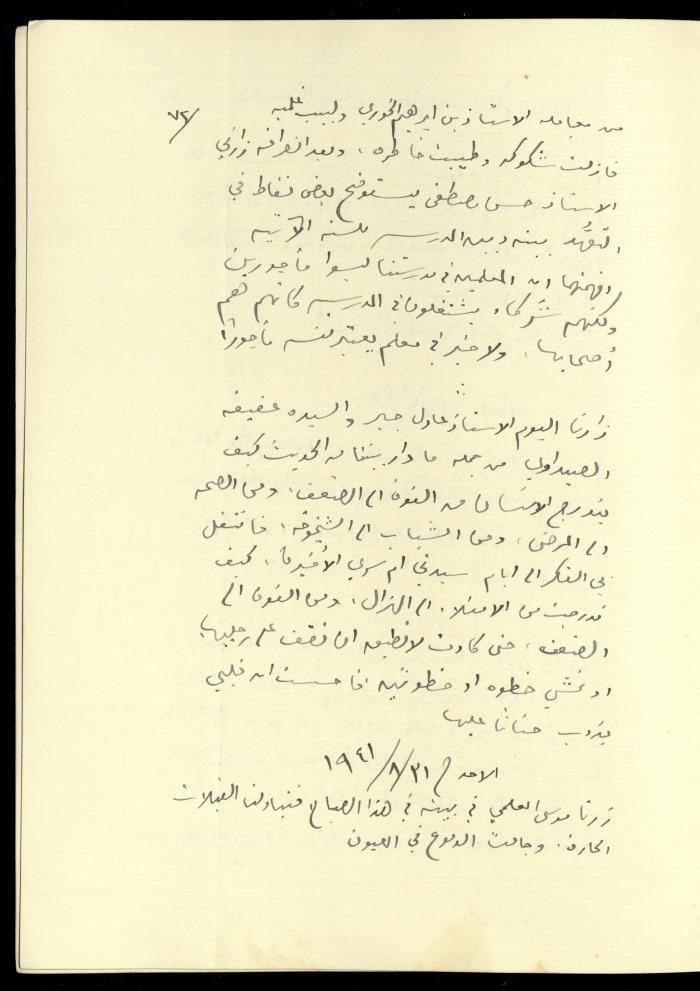 ٧٢/
من معامله الاستاذين ابرهيم الخوري ولبيب غلميه
فازلت شكوكه وطيبت خاطره، وبعد انصرافه زارني
الاستاذ حسن مصطفى يستوضح بعض نقاط في
التعهُّد بينه وبين المدرسه للسنه الآتيه
افهمتها ان المعلمين في مدرستنا ليسوا مأجورين
ولكنهم شركاء يشتغلون في المدرسه كأنهم هم
أصحابها، ولا خير في معلم يعتبر نفسه مأجوراً
زارنا اليوم الاستاذ عادل جبر والسيده عفيفه
الصيداوي من جمله ما دار بيننا من الحديث كيف
يتدرج الانسان من القوة الى الضعف، ومن الصحه
الى المرض، ومن الشباب الى الشيخوخه، فانتقل
بي الفكر الى ايام سيدتي ام سري الأخيرة، كيف
تدرجت من الامتلاء الى الهزال، ومن القوة الى
الضعف، حتى كادت لا تطيق ان تقف على رجليها
او تمشي خطوه او خطوتين، فأحسست ان قلبي
يذوب حناناً عليها
الاحد ٣١/٨/١٩٤١
زرنا موسى العلمي في بيته في هذا الصباح فتبادلنا القبلات
الحاره. وجالت الدموع في العيون